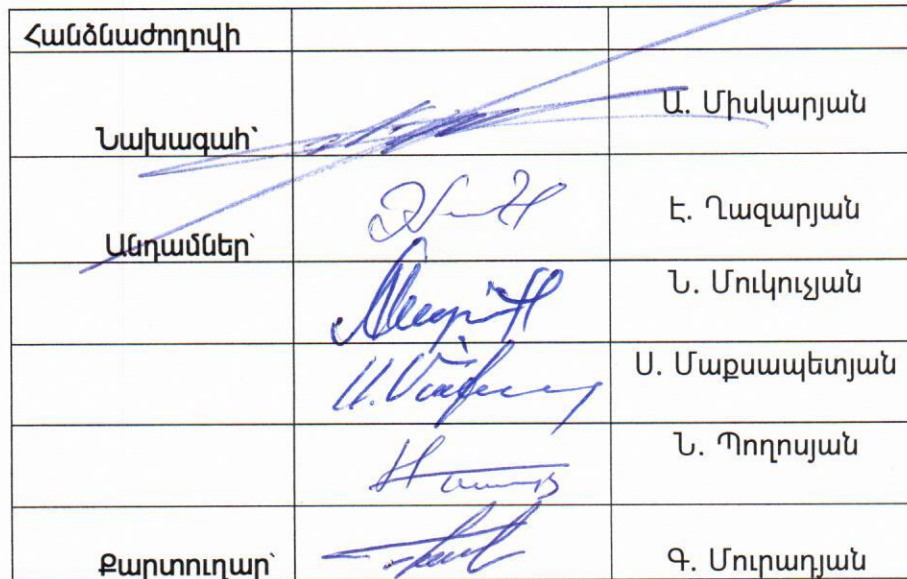 Հանձնաժողովի
Նախագահ՝ Ա. Միսկարյան
Անդամներ՝ Է. Ղազարյան
Ն. Մուկուչյան
Ս. Մաքսապետյան
Ն. Պողոսյան
Քարտուղար՝ Գ. Մուրադյան